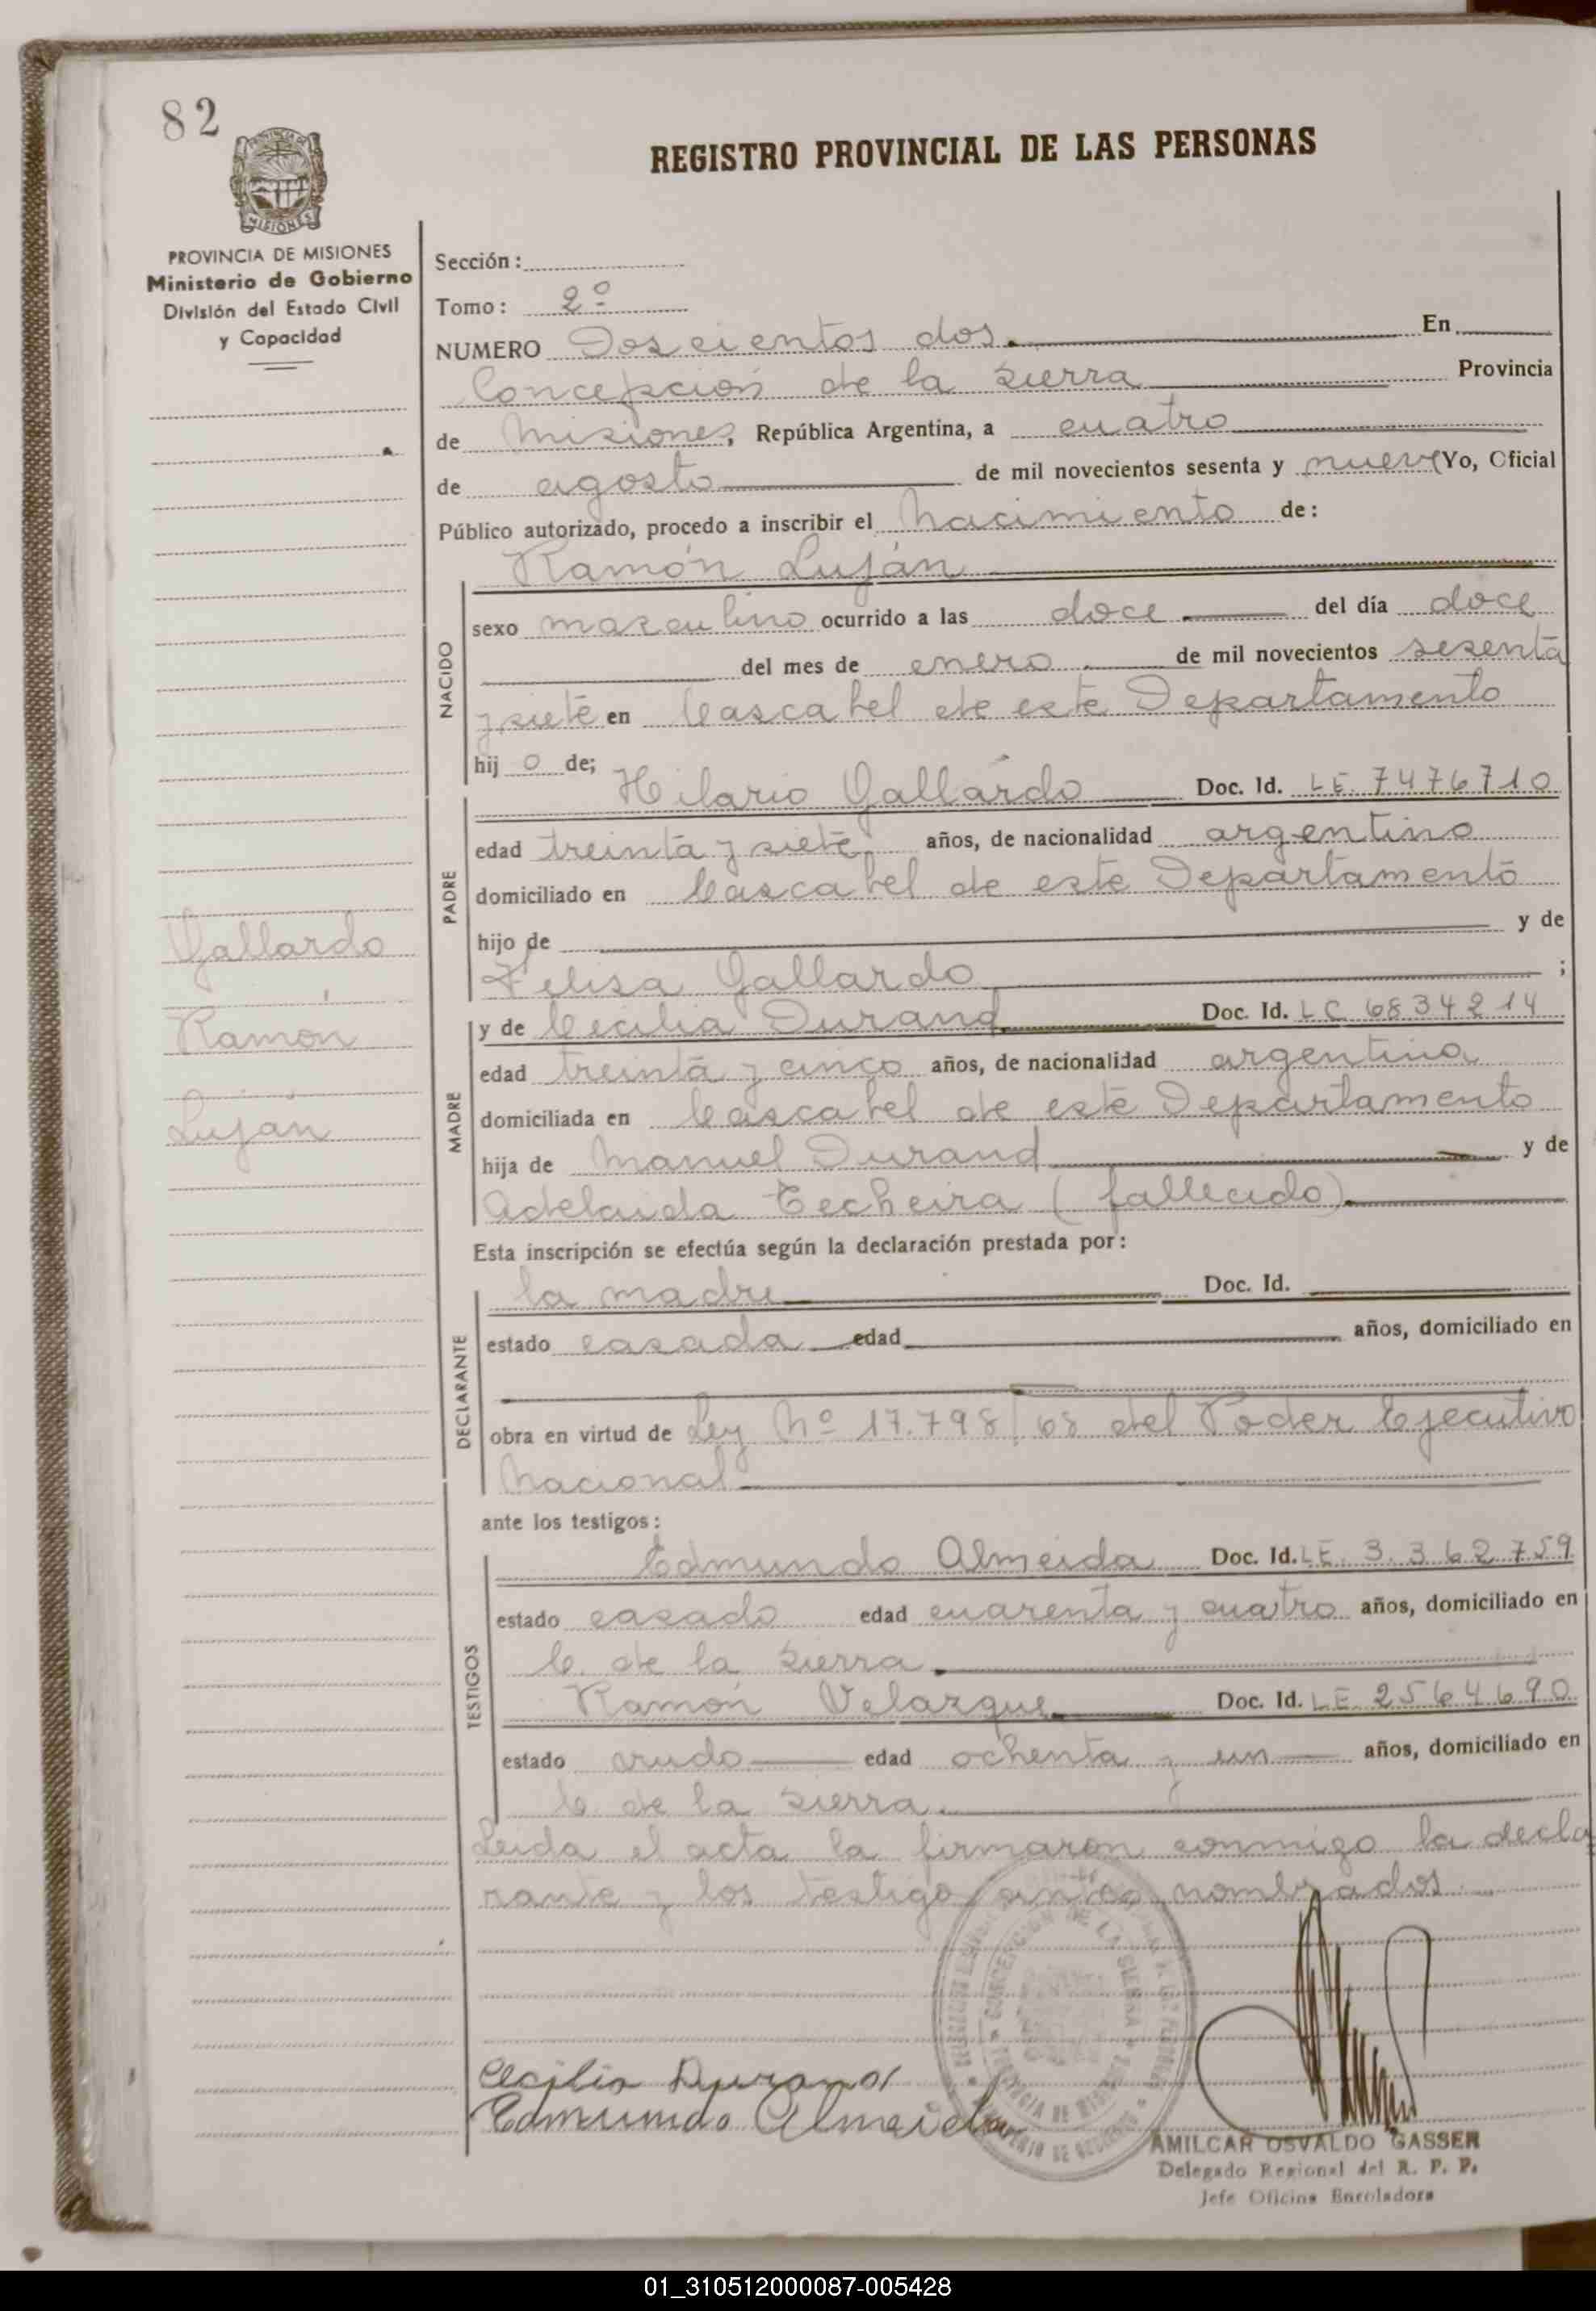 82
REGISTRO PROVINCIAL DE LAS PERSONAS
PROVINCIA DE MISIONES
Ministerio de Gobierno
División del Estado Civil
y Capacidad
Sección:
Tomo: 2º
NUMERO Doscientos dos. En
Concepción de la Sierra Provincia
de Misiones, República Argentina, a cuatro
de agosto de mil novecientos sesenta y nueve Yo, Oficial
Público autorizado, procedo a inscribir el nacimiento de:
Ramón Luján
NACIDO
sexo masculino ocurrido a las doce del día doce
del mes de enero de mil novecientos sesenta
y siete en Cascabel de este Departamento
hij o de;
PADRE
Hilario Gallardo Doc. Id. LE. 7476710
edad treinta y siete años, de nacionalidad argentino
domiciliado en Cascabel de este Departamento
hijo de y de
Felisa Gallardo ;
MADRE
y de Cecilia Durand Doc. Id. LC 6834214
edad treinta y cinco años, de nacionalidad argentina
domiciliada en Cascabel de este Departamento
hija de Manuel Durand y de
Adelaida Techeira (fallecido)
Gallardo
Ramón
Luján
Esta inscripción se efectúa según la declaración prestada por:
DECLARANTE
la madre Doc. Id.
estado casada edad años, domiciliado en
obra en virtud de Ley Nº 17.798/68 del Poder Ejecutivo
Nacional
ante los testigos:
TESTIGOS
Edmundo Almeida Doc. Id. LE. 3.362.759
estado casado edad cuarenta y cuatro años, domiciliado en
C. de la Sierra.
Ramón Velazque Doc. Id. LE 2564690
estado viudo edad ochenta y un años, domiciliado en
C. de la Sierra.
Leida el acta la firmaron conmigo la decla
rante y los testigo antes nombrados
CONCEPCION DE LA SIERRA
Cecilia Durand
Edmundo Almeida
AMILCAR OSVALDO GASSER
Delegado Regional del R. P. P.
Jefe Oficina Enroladora
01_310512000087-005428